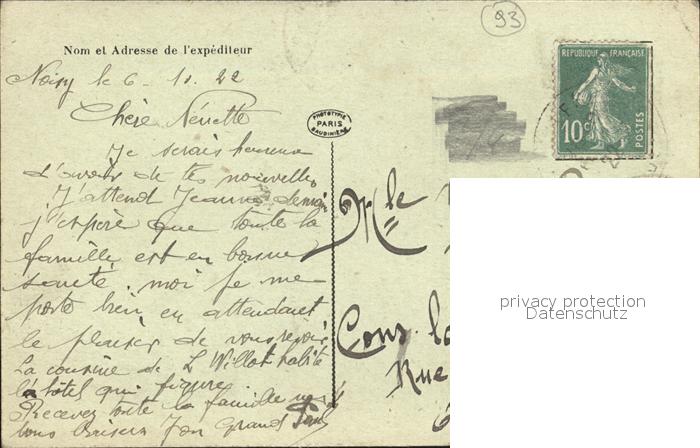 93
Nom et Adresse de l'expéditeur
Noisy le 6-10.22
Chère Nénette
Je serais heureux
d'avoir de tes nouvelles
J'attend Jeanne demain
j'espère que toute la
famille est en bonne
santé. moi je me
porte bien en attendant
le plaisir de vous revoir
La cousine de L Willot habite
l'hôtel qui figure.
Recevez toute la famille mes
bons Baisers Ton Grand Paul
PHOTOTYPIE
PARIS
BAUDINIÈRE
REPUBLIQUE FRANÇAISE
10c
POSTES
Mle
Cons. la
Rue
privacy protection
Datenschutz